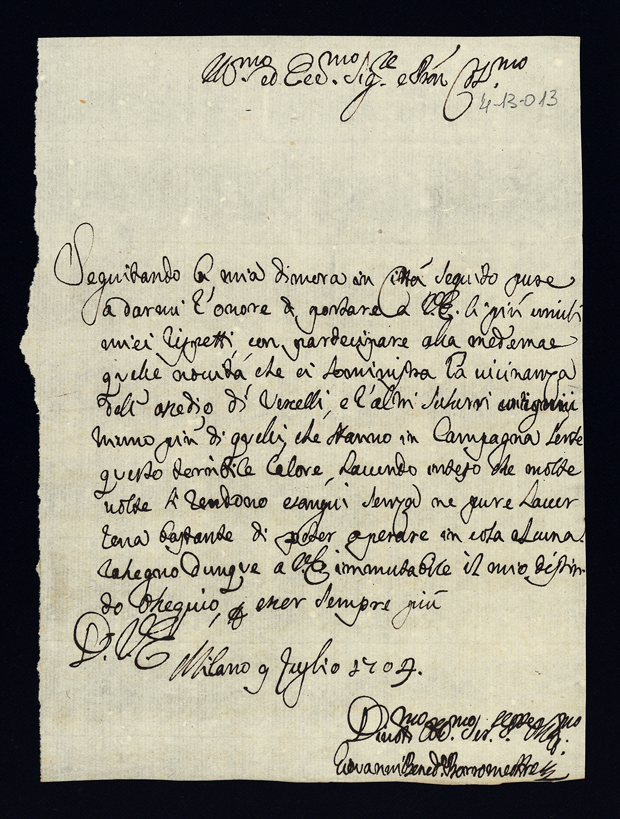 Ill.mo ed Ecc.mo Sig.re e Pron Col.mo
4-13-013
Seguitando la mia dimora in Città seguito pure
a darmi l'onore di portare a V.E. li più umili
miei rispetti, con partecipare alla medema
quelle novità, che ci somministra la vicinanza
dell' asedio di Vercelli, e l'altri
meno più di quelli, che stanno in Campagna sente
questo terribile Calore, havendo inteso che molte
volte si rendono esangui senza ne pure haver
lena bastante di poter operare in cosa alcuna
rasegno dunque a V.E. immutabile il mio distin
to Ossequio, di esser sempre più
D. V.E.
Milano 9 Juglio 1704.
Dinot.mo
Giovanni Bened. Borromeo